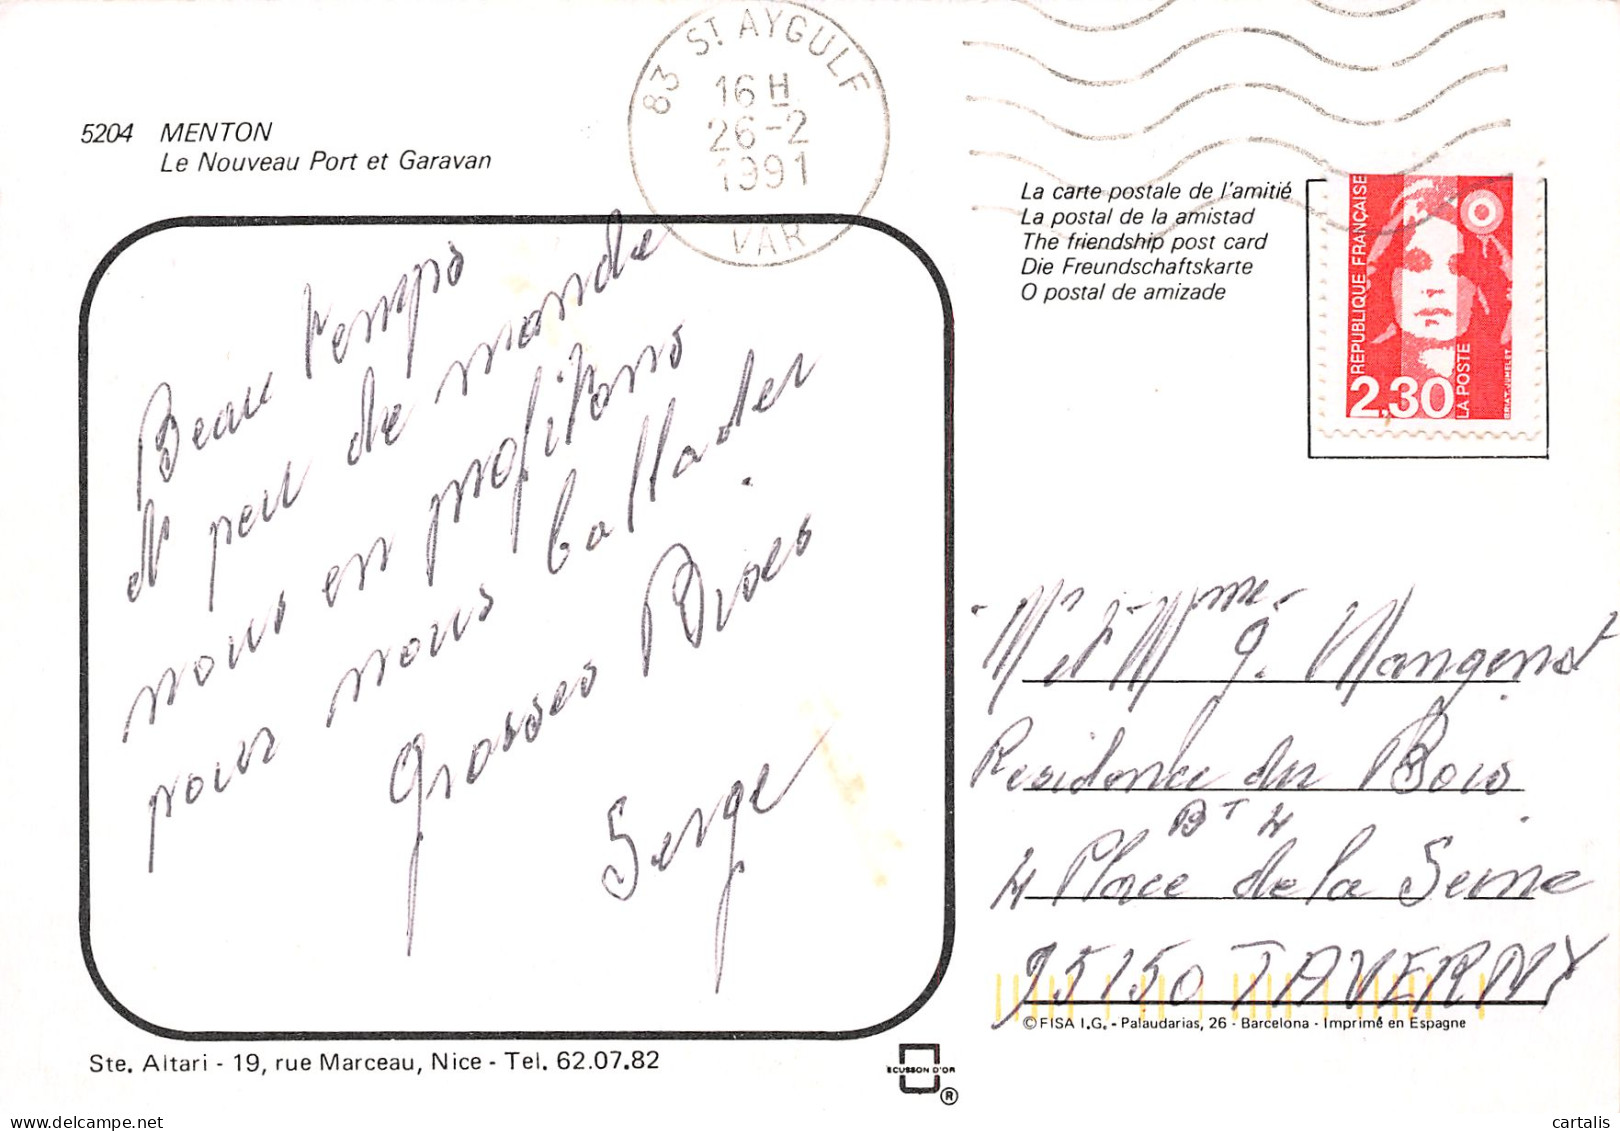 83 ST AYGULF
16 H
26-2
1991
VAR
5204 MENTON
Le Nouveau Port et Garavan
La carte postale de l'amitié
La postal de la amistad
The friendship post card
Die Freundschaftskarte
O postal de amizade
REPUBLIQUE FRANÇAISE
2,30
LA POSTE
BRIAT-JUMELET
Beau temps
et peu de monde
nous en profitons
pour nous ballader.
Grosses Bises
Serge
Mr et Mme G. Mangenot
Residence du Bois
BT 4
4 Place de la Seine
95150 TAVERNY
© FISA I.G. - Palaudarias, 26 - Barcelona - Imprimé en Espagne
Ste. Altari - 19, rue Marceau, Nice - Tel. 62.07.82
ECUSSON D'OR
®
cartalis